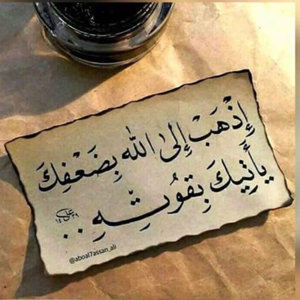 إِذْهَبْ إِلىٰ اللّٰه بِضَعْفِكَ
يأتِيكَ بِقُوتِهِ ..
@aboal7assan_ali